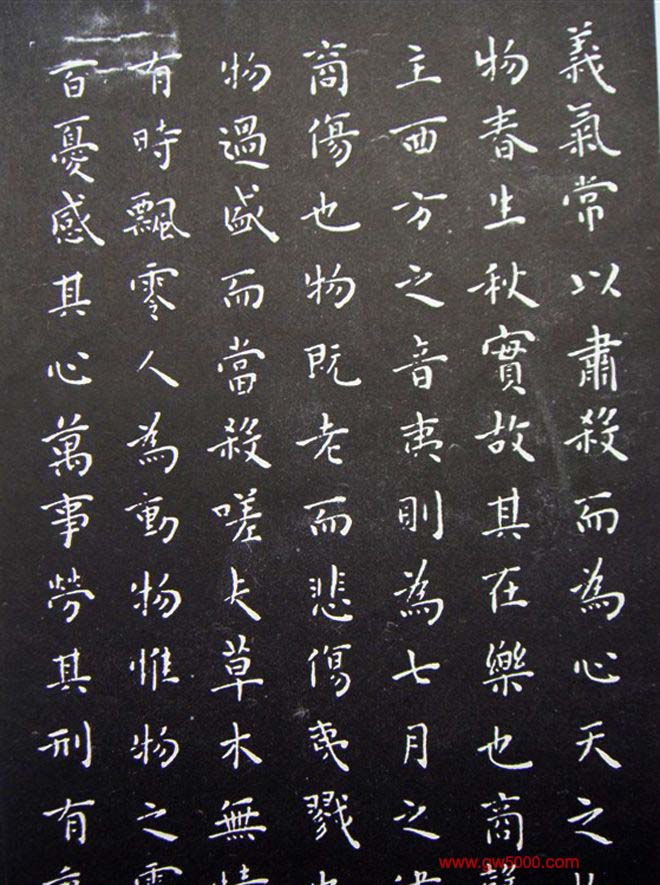 義氣常以肅殺而為心天之
物春生秋實故其在樂也商
主西方之音夷則為七月之
商傷也物既老而悲傷夷戮
物過盛而當殺嗟夫草木無
有時飄零人為動物惟物之
百憂感其心萬事勞其刑有
www.gw5000.com